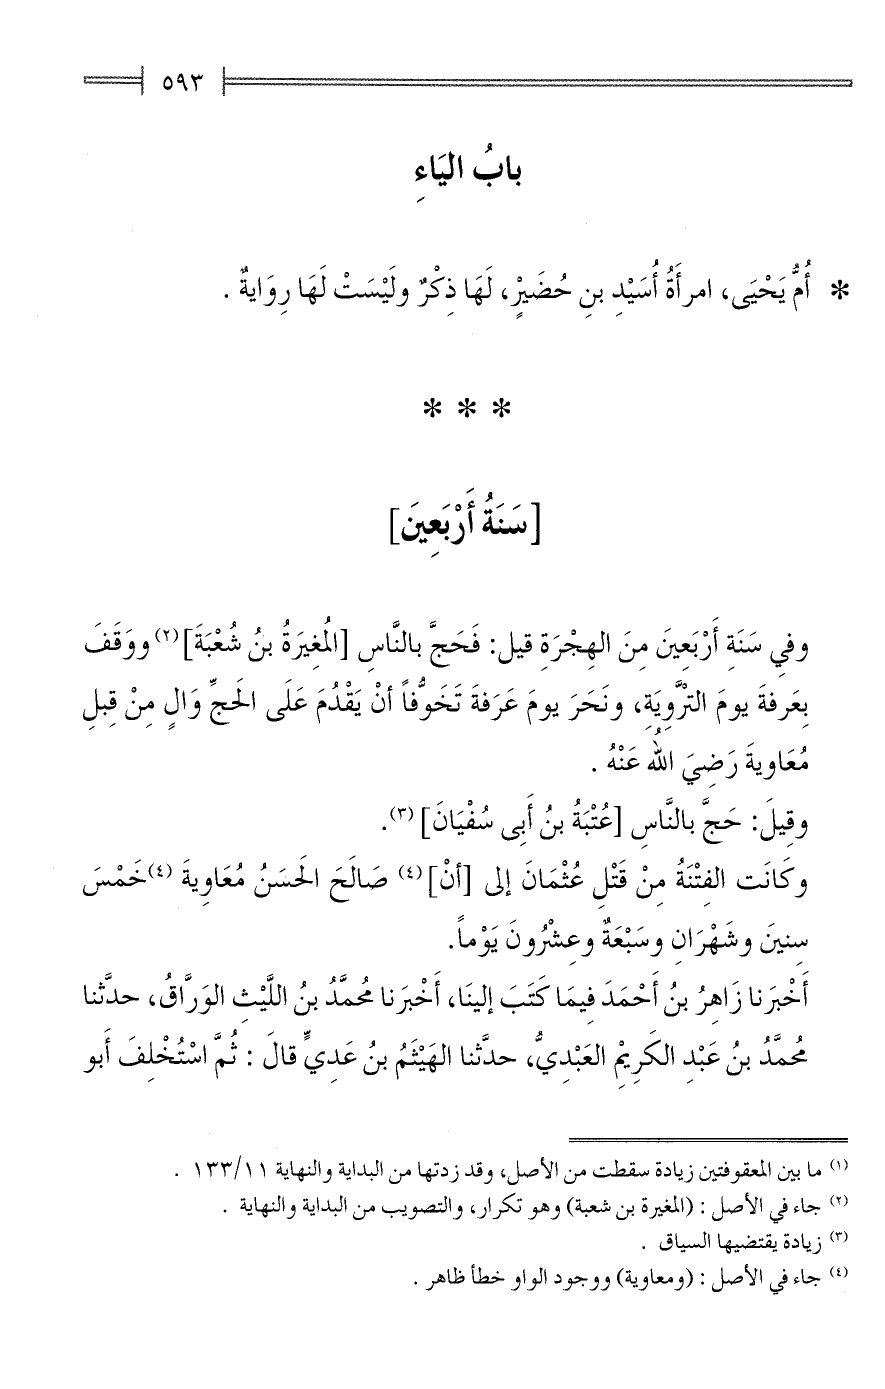 ٥٩٣
بابُ اليَاءِ
* أُمُّ يَحْيَى، امرأَةُ أُسَيْدِ بنِ حُضَيْرٍ، لَهَا ذِكْرٌ ولَيْسَتْ لَهَا رِوَايةٌ .
* * *
[سَنَةُ أَرْبَعِينَ]
وفي سَنَةِ أَرْبَعِينَ مِنَ الهِجْرَةِ قيل: فَحَجَّ بالنَّاسِ [المُغِيرَةُ بنُ شُعْبَةَ](٢) ووَقَفَ
بِعَرفةَ يومَ التَّرْوِيَةِ، ونَحَرَ يومَ عَرَفةَ تَخَوُّفاً أنْ يَقْدُمَ عَلَى الحَجِّ وَالٍ مِنْ قِبلِ
مُعَاويةَ رَضِيَ اللهُ عَنْهُ .
وقِيلَ: حَجَّ بالنَّاسِ [عُتْبَةُ بنُ أَبِى سُفْيَانَ](٣).
وكَانَت الفِتْنَةُ مِنْ قَتْلِ عُثْمَانَ إلى [أنْ](٤) صَالَحَ الحَسَنُ مُعَاوِيةَ(٤) خَمْسَ
سِنينَ وشَهْرَانِ وسَبْعَةٌ وعِشْرُونَ يَوْماً.
أَخْبَرَنا زَاهِرُ بنُ أَحْمَدَ فِيمَا كَتَبَ إلينَا، أَخْبَرَنا مُحمَّدُ بنُ اللَّيْثِ الوَرَّاقُ، حدَّثنا
مُحمَّدُ بنُ عَبْدِ الكَرِيْمِ العَبْدِيُّ، حدَّثنا الهَيْثَمُ بنُ عَدِيٍّ قالَ : ثُمَّ اسْتُخْلِفَ أَبو
(١) ما بين المعقوفتين زيادة سقطت من الأصل، وقد زدتها من البداية والنهاية ١٣٣/١١ .
(٢) جاء في الأصل : (المغيرة بن شعبة) وهو تكرار، والتصويب من البداية والنهاية .
(٣) زيادة يقتضيها السياق .
(٤) جاء في الأصل : (ومعاوية) ووجود الواو خطأ ظاهر .